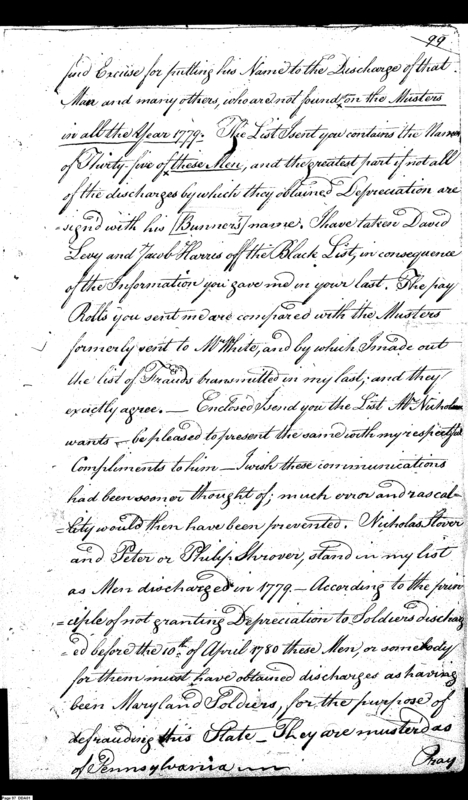 99
find Excuse for putting his Name to the Discharge of that
Man and many others, who are not found on the Musters
in all the Year 1779. The List I sent you contains the Names
of Thirty five of these Men, and the greatest part if not all
of the discharges by which they obtained Depreciation are
=signd with his [Bunner's] name. I have taken David
Levy and Jacob Harris off the Black List, in consequence
of the Information you gave me in your last. The pay
Rolls you sent me are compared with the Musters
formerly sent to Mr White, and by which I made out
the list of Frauds transmitted in my last; and they
exactly agree. — Enclosed I send you the List Mr Nicholson
wants — be pleased to present the same with my respectful
Compliments to him — I wish these communications
had been sooner thought of; much error and rascal=
=lity would then have been prevented. Nicholas Stover
and Peter or Philip Shrover, stand in my list
as Men discharged in 1779 — According to the prin
=ciple of not granting Depreciation to Soldiers discharg
=ed before the 10th of April 1780 these Men, or somebody
for them must have obtained discharges as having
been Maryland Soldiers, for the purpose of
defrauding this State — They are musterd as
of Pennsylvania
Pray
Page 97